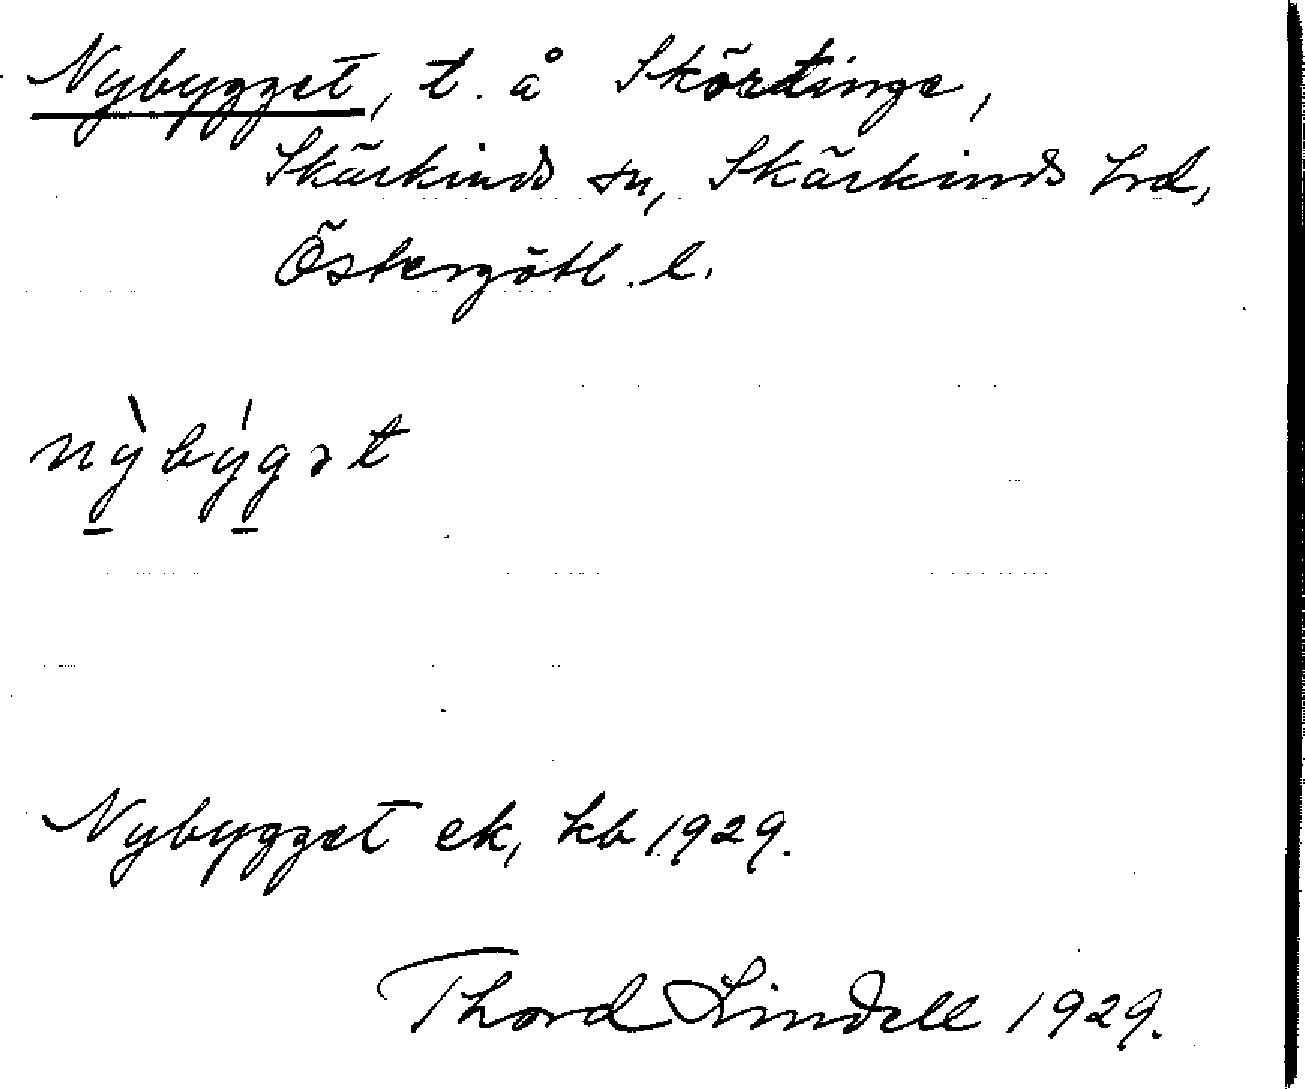 Nybygget, t. å Skörtinge,
Skärkinds sn, Skärkinds hd,
Östergötl. l.
nỳbýgət
Nybygget ek, kb 1929.
Thord Lindell 1929.